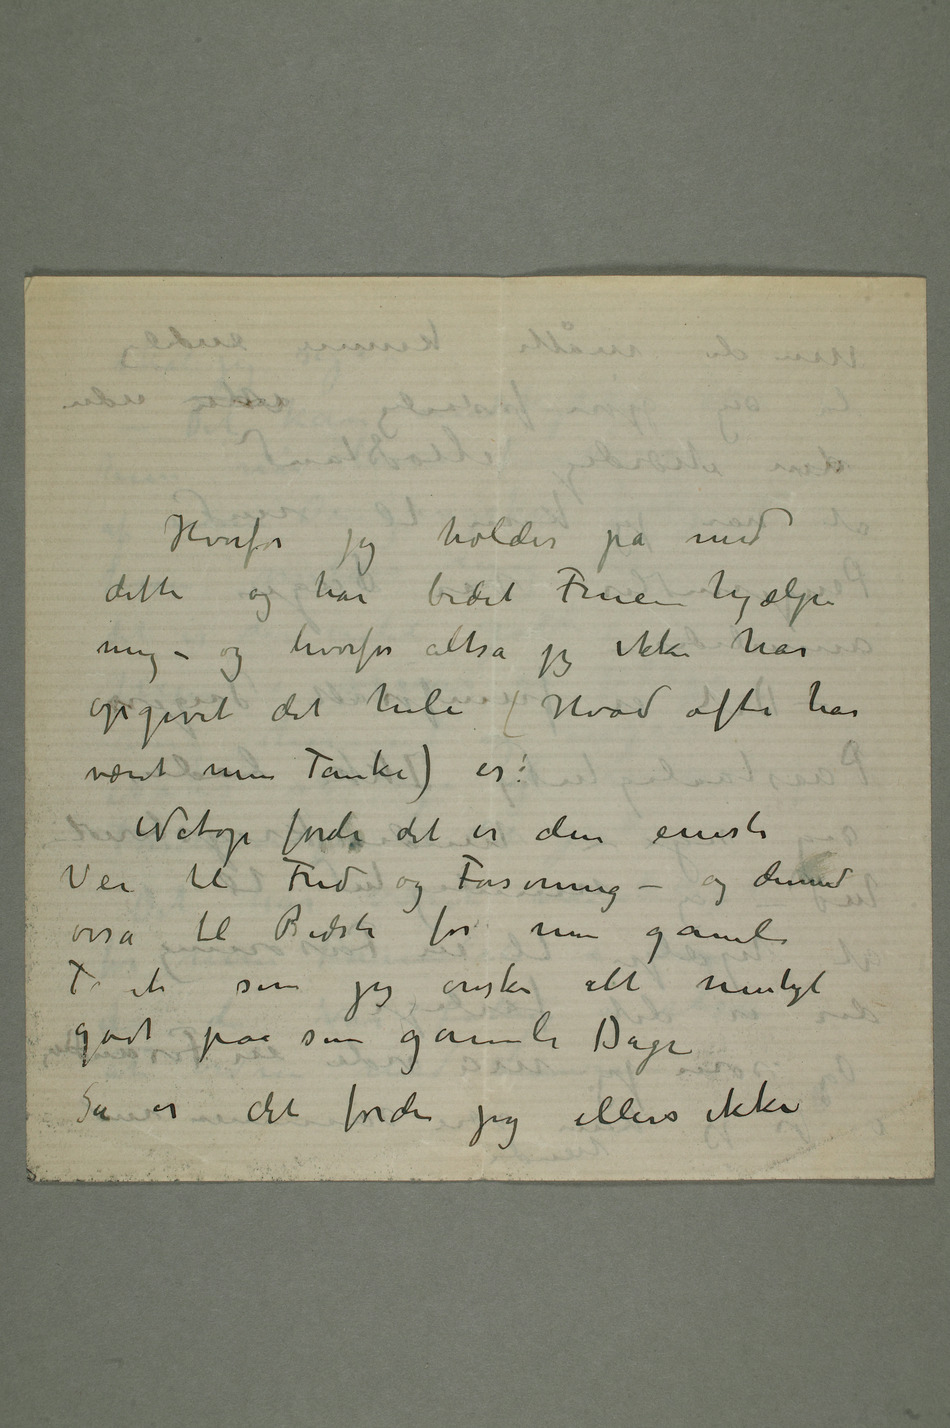 Hvorfor jeg holder på med
dette og har bedet Fruen hjælpe
mig – og hvorfor altså jeg ikke har
opgivet det hele (Hvad ofte har
været min Tanke) er:
Netop fordi det er den eneste
Vei til Fred og Forsoning – og dermed
også til Bedste for min gamle
som jeg ønsker alt muligt
godt paa sine gamle Dage
Så er det fordi jeg ellers ikke